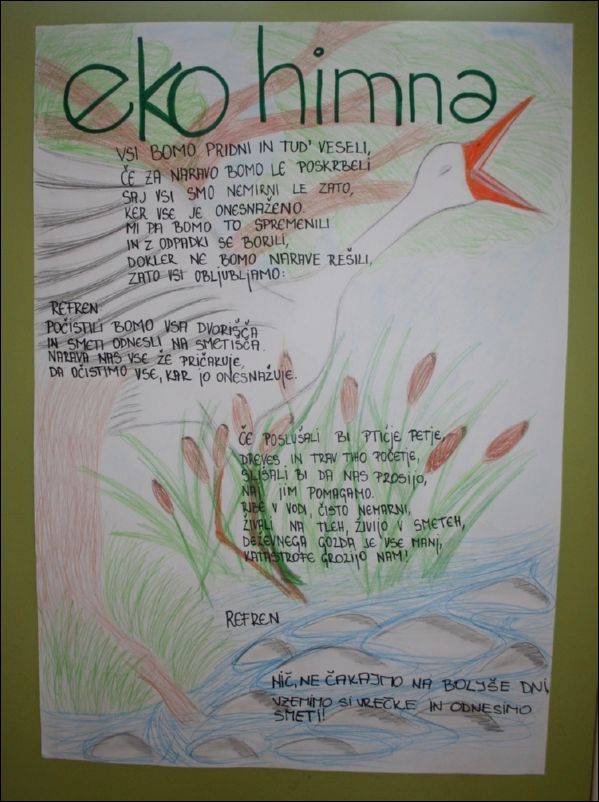 eko himna
VSI BOMO PRIDNI IN TUD' VESELI,
ČE ZA NARAVO BOMO LE POSKRBELI
SAJ VSI SMO NEMIRNI LE ZATO,
KER VSE JE ONESNAŽENO.
MI PA BOMO TO SPREMENILI
IN Z ODPADKI SE BORILI,
DOKLER NE BOMO NARAVE REŠILI,
ZATO VSI OBLJUBLJAMO:
REFREN
POČISTILI BOMO VSA DVORIŠČA
IN SMETI ODNESLI NA SMETIŠČA.
NARAVA NAS VSE ŽE PRIČAKUJE,
DA OČISTIMO VSE, KAR JO ONESNAŽUJE.
ČE POSLUŠALI BI PTIČJE PETJE,
DREVES IN TRAV TIHO POČETJE,
SLIŠALI BI DA NAS PROSIJO,
NAJ JIM POMAGAMO.
RIBE V VODI, ČISTO NEMARNI,
ŽIVALI NA TLEH, ŽIVIJO V SMETEH,
DEŽEVNEGA GOZDA JE VSE MANJ,
KATASTROFE GROZIJO NAM!
REFREN
NIČ, NE ČAKAJMO NA BOLJŠE DNI,
VZEMIMO SI VREČKE IN ODNESIMO
SMETI!